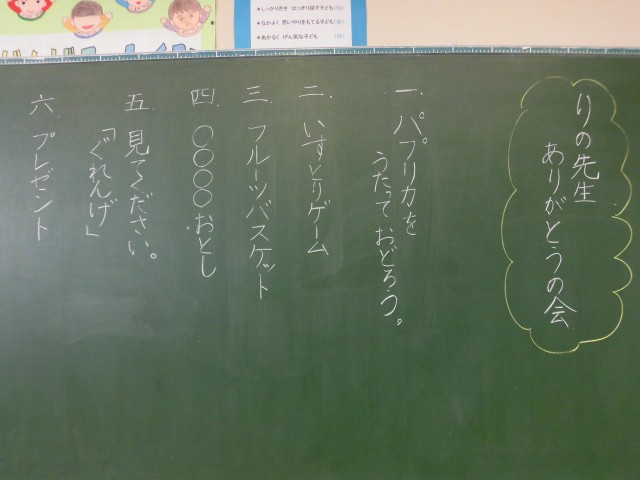 りの先生
ありがとうの会
一. パプリカを
うたっておどろう。
二. いすとりゲーム
三. フルーツバスケット
四. ○○○○おとし
五. 見てください。
「ぐれんげ」
六. プレゼント
★しっかりきき はっきり話す子ども
★なかよく 思いやりをもてる子ども
★あかるく げん気な子ども